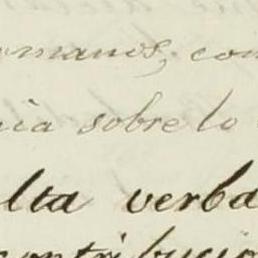 omanos, con
nia sobre lo
lta verba
contribucio